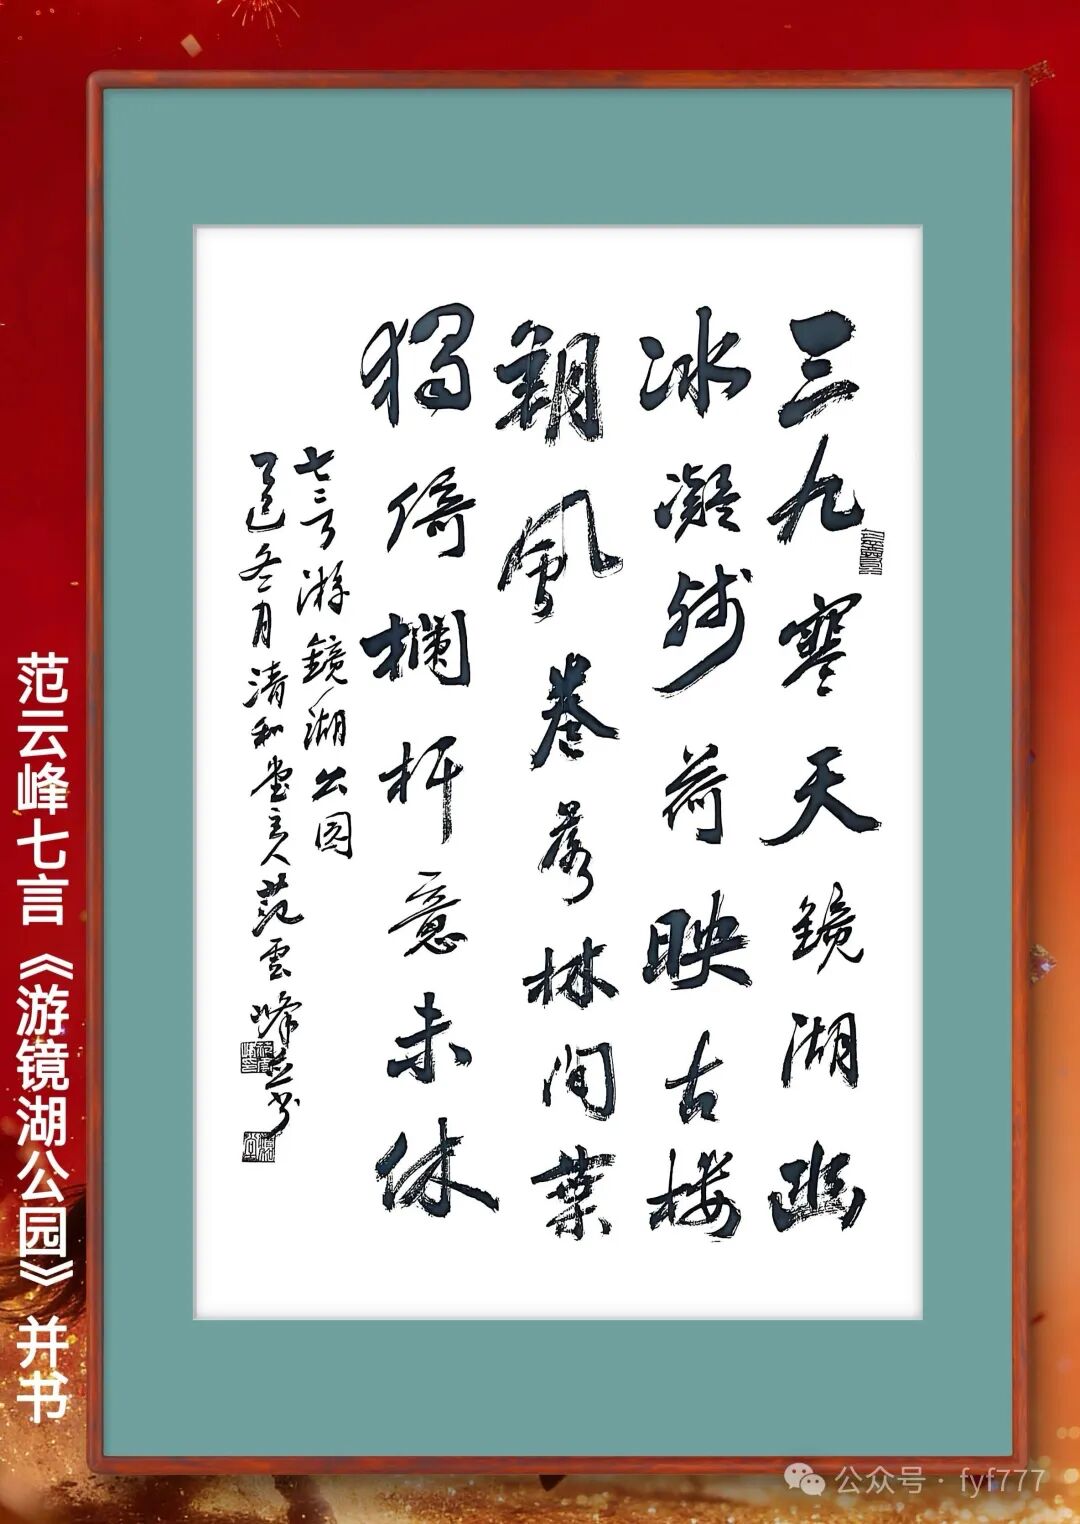 三九寒天鏡湖幽
冰凝残荷映古楼
朔風卷落林间葉
獨倚欄杆意未休
七言游鏡湖公园
乙巳冬月清和堂主人范雲峰并书
范云峰七言《游镜湖公园》并书
公众号 · fyf777